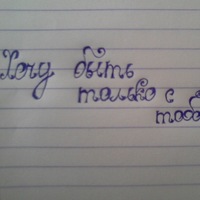 Хочу быть
только с
тоб